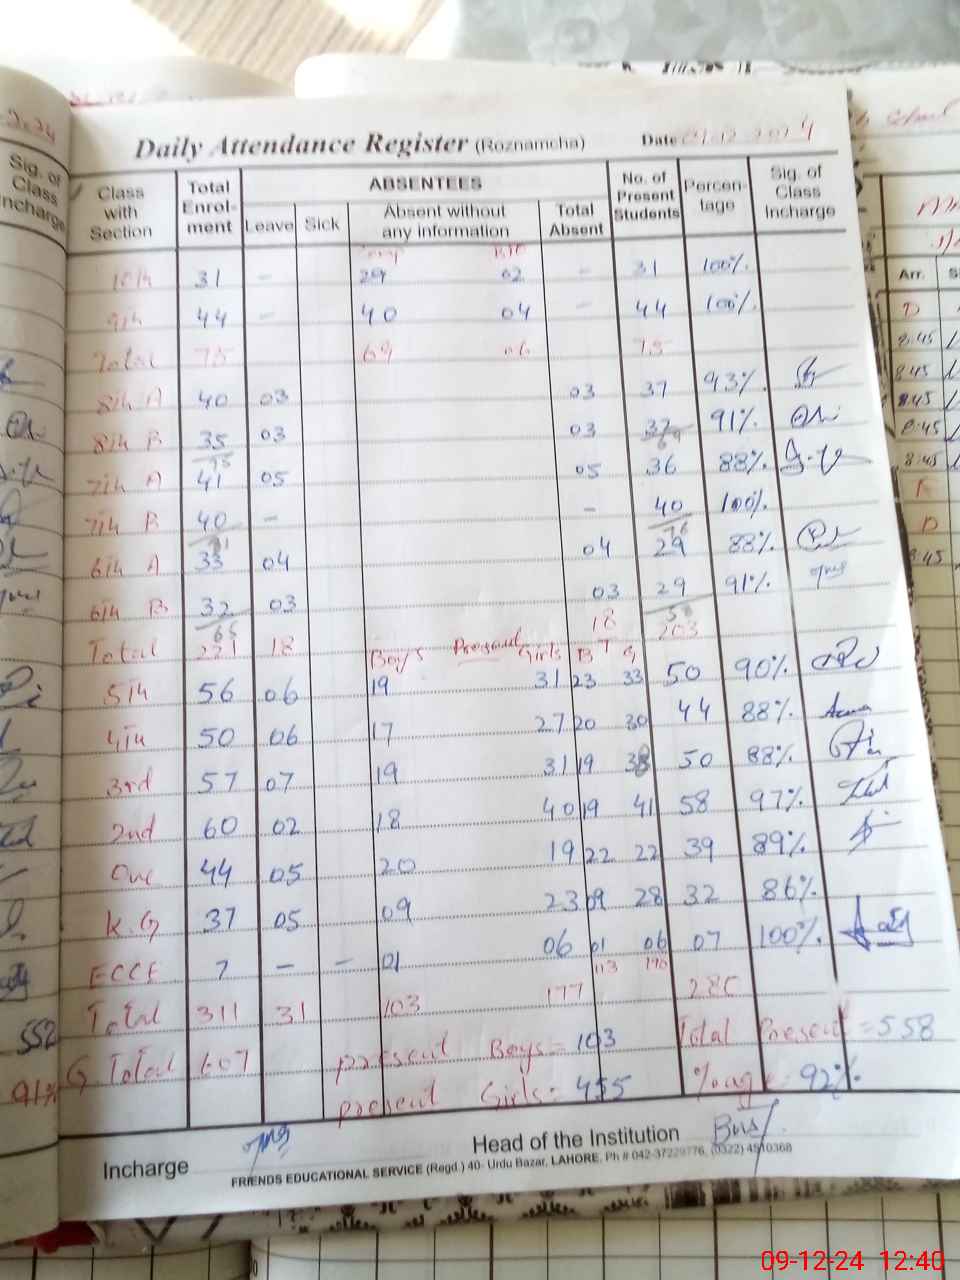 Daily Attendance Register (Roznamcha) Date 09.12.2024
Class with Section Total Enrol-ment ABSENTEES No. of Present Students Percen-tage Sig. of Class Incharge
Leave Sick Absent without any information Total Absent
Comp Bio
10th 31 - 29 02 - 31 100%
9th 44 - 40 04 - 44 100%
Total 75 69 06 75
8th A 40 03 03 37 93%
8th B 35 03 03 32 91%
75 69
7th A 41 05 05 36 88%
7th B 40 - - 40 100%
81 76
6th A 33 04 04 29 88%
6th B 32 03 03 29 91%
65 58
Total 221 18 18 203
Boys Present Girls B T G
5th 56 06 19 31 23 33 50 90%
4th 50 06 17 27 20 30 44 88%
3rd 57 07 19 31 19 38 50 88%
2nd 60 02 18 40 19 41 58 97%
One 44 05 20 19 22 22 39 89%
K.G 37 05 09 23 09 28 32 86%
ECCE 7 - - 01 06 01 06 07 100%
113 198
Total 311 31 103 177 280
G Total 607 present Boys = 103 Total Present = 558
present Girls = 455 %age = 92%
Incharge Head of the Institution
FRIENDS EDUCATIONAL SERVICE (Regd.) 40- Urdu Bazar, LAHORE. Ph # 042-37229776, (0322) 4510368
Sig. of Class Incharge
552
91%
Arr.
D
8:45
8:45
8:45
8:45
8:45
F
D
8:45
09-12-24 12:40